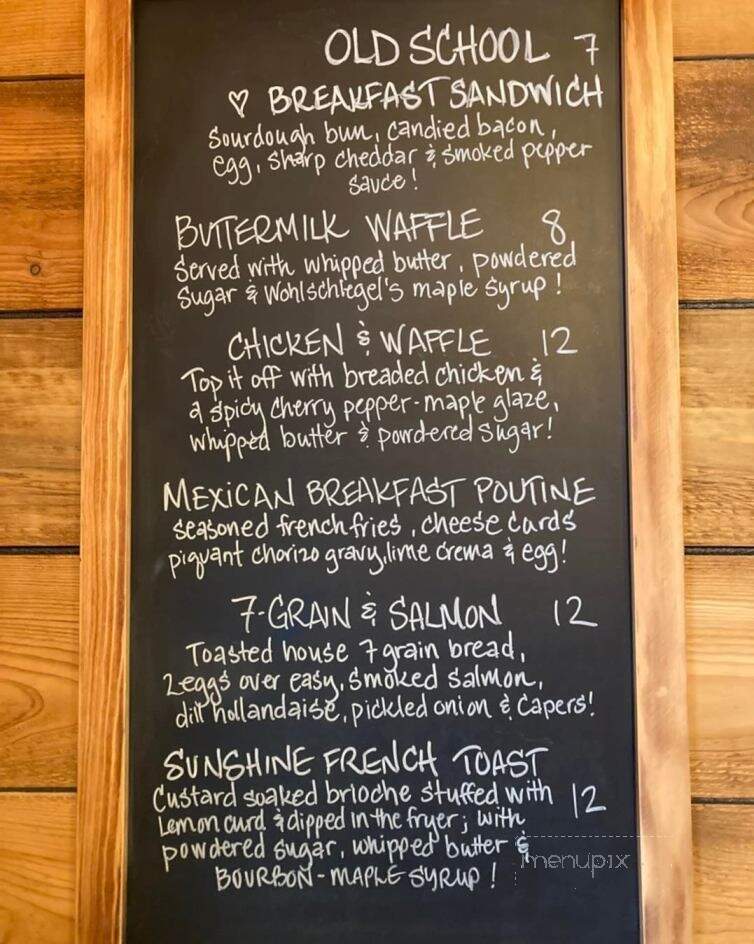 OLD SCHOOL 7
♡ BREAKFAST SANDWICH
Sourdough bun, candied bacon,
egg, sharp cheddar & smoked pepper
sauce!
BUTTERMILK WAFFLE 8
Served with whipped butter, powdered
Sugar & Wohlschlegel's maple syrup!
CHICKEN & WAFFLE 12
Top it off with breaded chicken &
a spicy cherry pepper-maple glaze,
whipped butter & powdered sugar!
MEXICAN BREAKFAST POUTINE
seasoned french fries, cheese curds
piquant chorizo gravy, lime crema & egg!
7-GRAIN & SALMON 12
Toasted house 7 grain bread,
2 eggs over easy, smoked salmon,
dill hollandaise, pickled onion & capers!
SUNSHINE FRENCH TOAST
Custard soaked brioche stuffed with 12
Lemon curd & dipped in the fryer; with
powdered sugar, whipped butter &
BOURBON-MAPLE SYRUP!
menupix